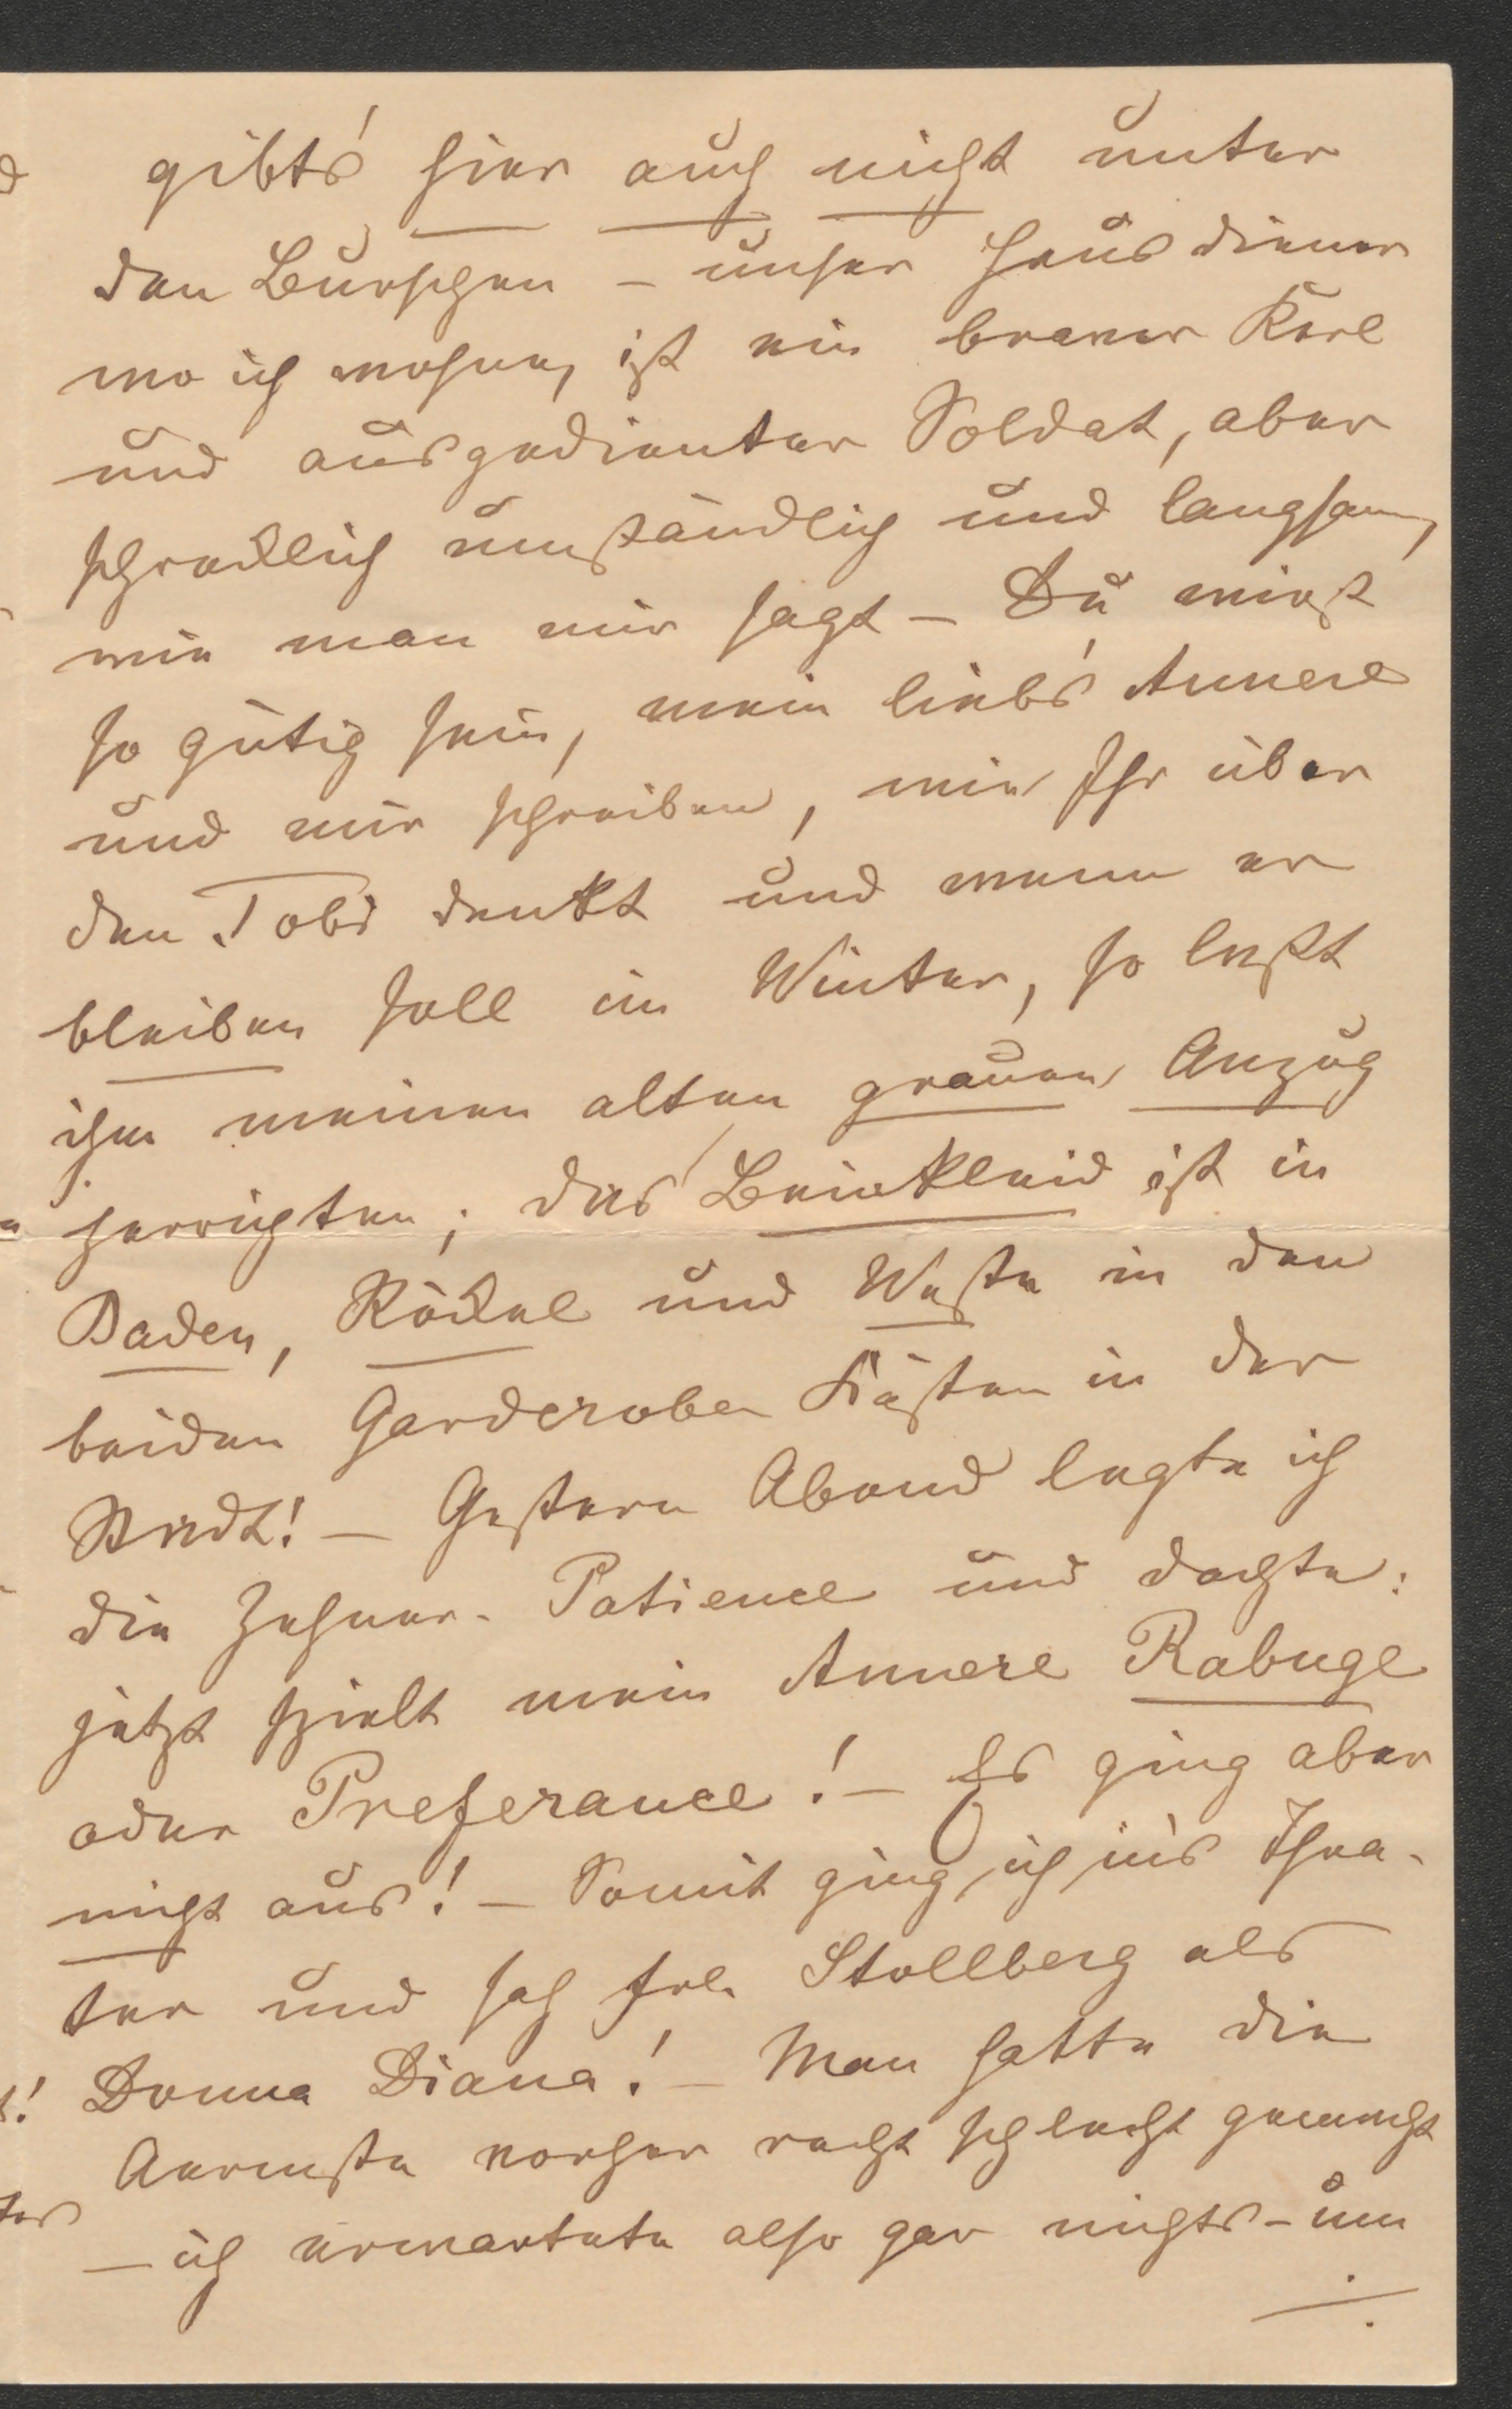 gibts' hier auch nicht unter
den Burschen – unser Hausdiener
wo ich wohne, ist ein braver Kerl
und ausgedienter Soldat, aber
schrecklich umständlich und langsam,
wie man mir sagt – Du wirst
so gütig sein, mein liebs' Annerl
und mir schreiben, wie Ihr über
den Tobi denkt und wenn er
bleiben soll im Winter, so laßt
ihm meinen alten grauen Anzug
herrichten; das Beinkleid ist in
Baden, Röckel und Weste in den
beiden Garderobe Kästen in der
Stadt! – Gestern Abend legte ich
die Zehner-Patience und dachte:
jetzt spielt mein Annerl Rabuge
oder Preferance! – Es ging aber
nicht aus! – Somit ging ich in's Thea-
ter und sah Frl. Stollberg als
Donna Diana! – Man hatte die
Aermste vorher recht schlecht gemacht
– ich erwartete also gar nichts – um